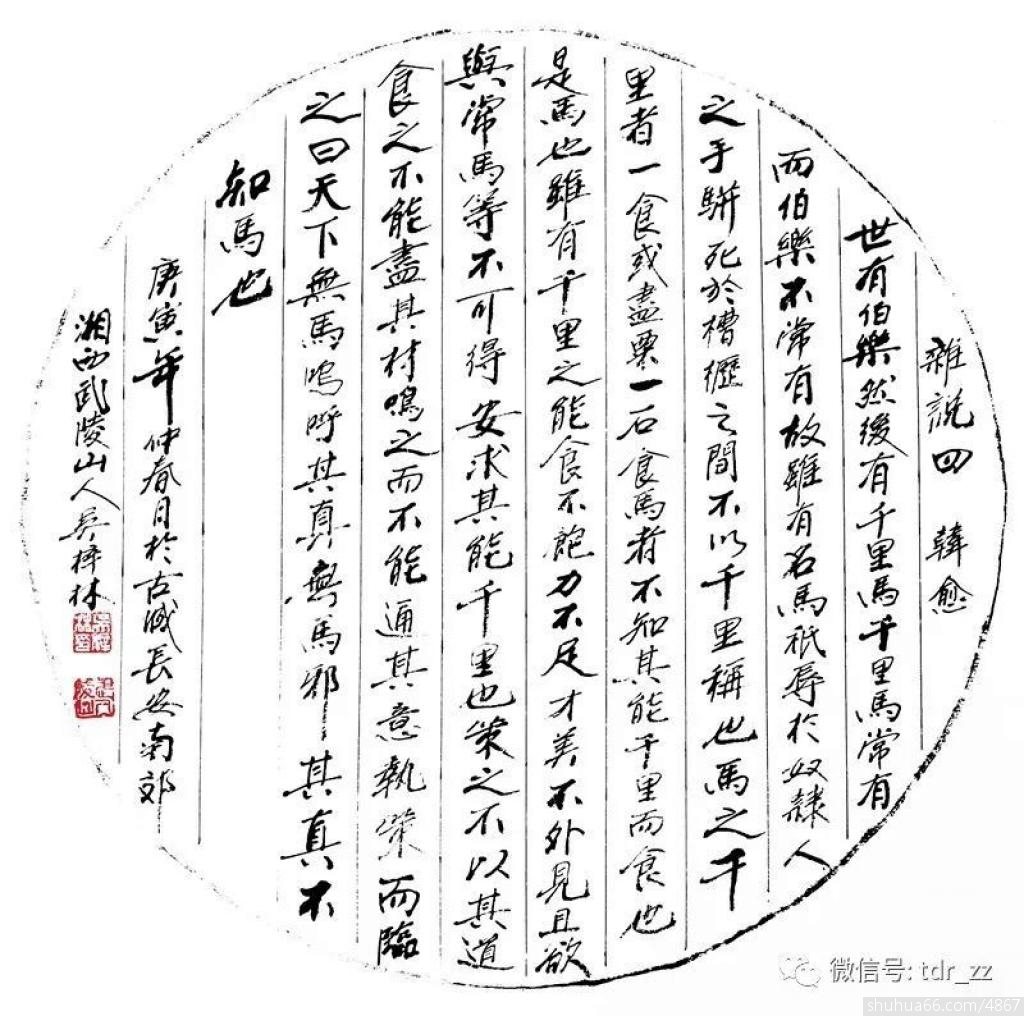 雜說四 韓愈
世有伯樂然後有千里馬千里馬常有
而伯樂不常有故雖有名馬祇辱於奴隸人
之手駢死於槽櫪之間不以千里稱也馬之千
里者一食或盡粟一石食馬者不知其能千里而食也
是馬也雖有千里之能食不飽力不足才美不外見且欲
與常馬等不可得安求其能千里也策之不以其道
食之不能盡其材鳴之而不能通其意執策而臨
之曰天下無馬嗚呼其真無馬邪其真不
知馬也
庚寅年仲春月於古城長安南郊
湘西武陵山人吳梓林
微信号: tdr_zz
shuhua66.com/4867